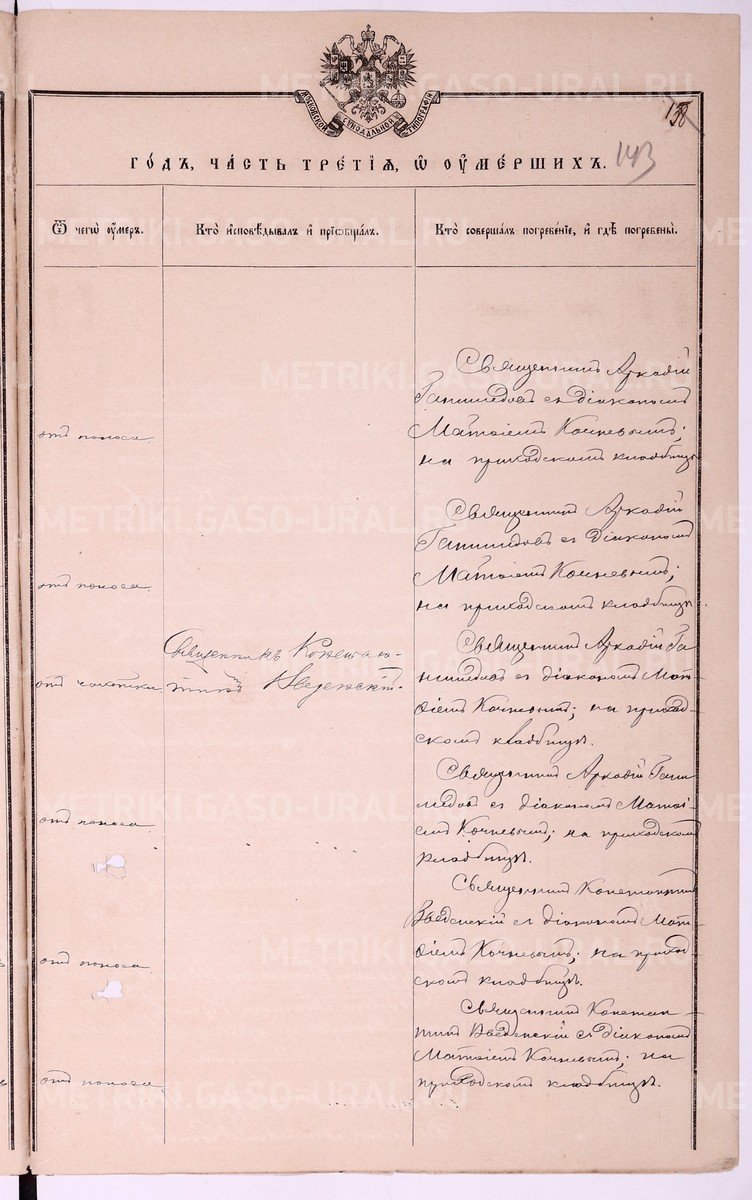 МОСКОВСКОЙ СѴНОДАЛЬНОЙ ТИПОГРАФІИ
158
143
ГОДЪ, ЧАСТЬ ТРЕТІЯ, Ѡ ОУМЕРШИХЪ.
Ѿ чегѡ оумеръ.
Кто исповѣдывалъ и пріобщалъ.
Кто совершалъ погребеніе, и гдѣ погребены.
Священникъ Аркадій
съ діакономъ
отъ поноса.
Матѳіемъ Кочневымъ;
на приходскомъ кладбищѣ
Священникъ Аркадій
съ діакономъ
отъ поноса.
Матѳіемъ Кочневымъ;
на приходскомъ кладбищѣ.
Священникъ Констан-
тинъ Введенскій.
отъ чахотки
Священникъ Аркадій Га-
съ діакономъ Мат-
ѳіемъ Кочневымъ; на приход-
скомъ кладбищѣ.
отъ поноса.
Священникъ Аркадій
съ діакономъ Матѳі-
емъ Кочневымъ; на приходскомъ
кладбищѣ.
отъ поноса.
Священникъ Константинъ
Введенскій съ діакономъ Мат-
ѳіемъ Кочневымъ; на приход-
скомъ кладбищѣ.
отъ поноса.
Священникъ Констан-
тинъ Введенскій съ діакономъ
Матѳіемъ Кочневымъ; на
приходскомъ кладбищѣ.
METRIKI.GASO-URAL.RU